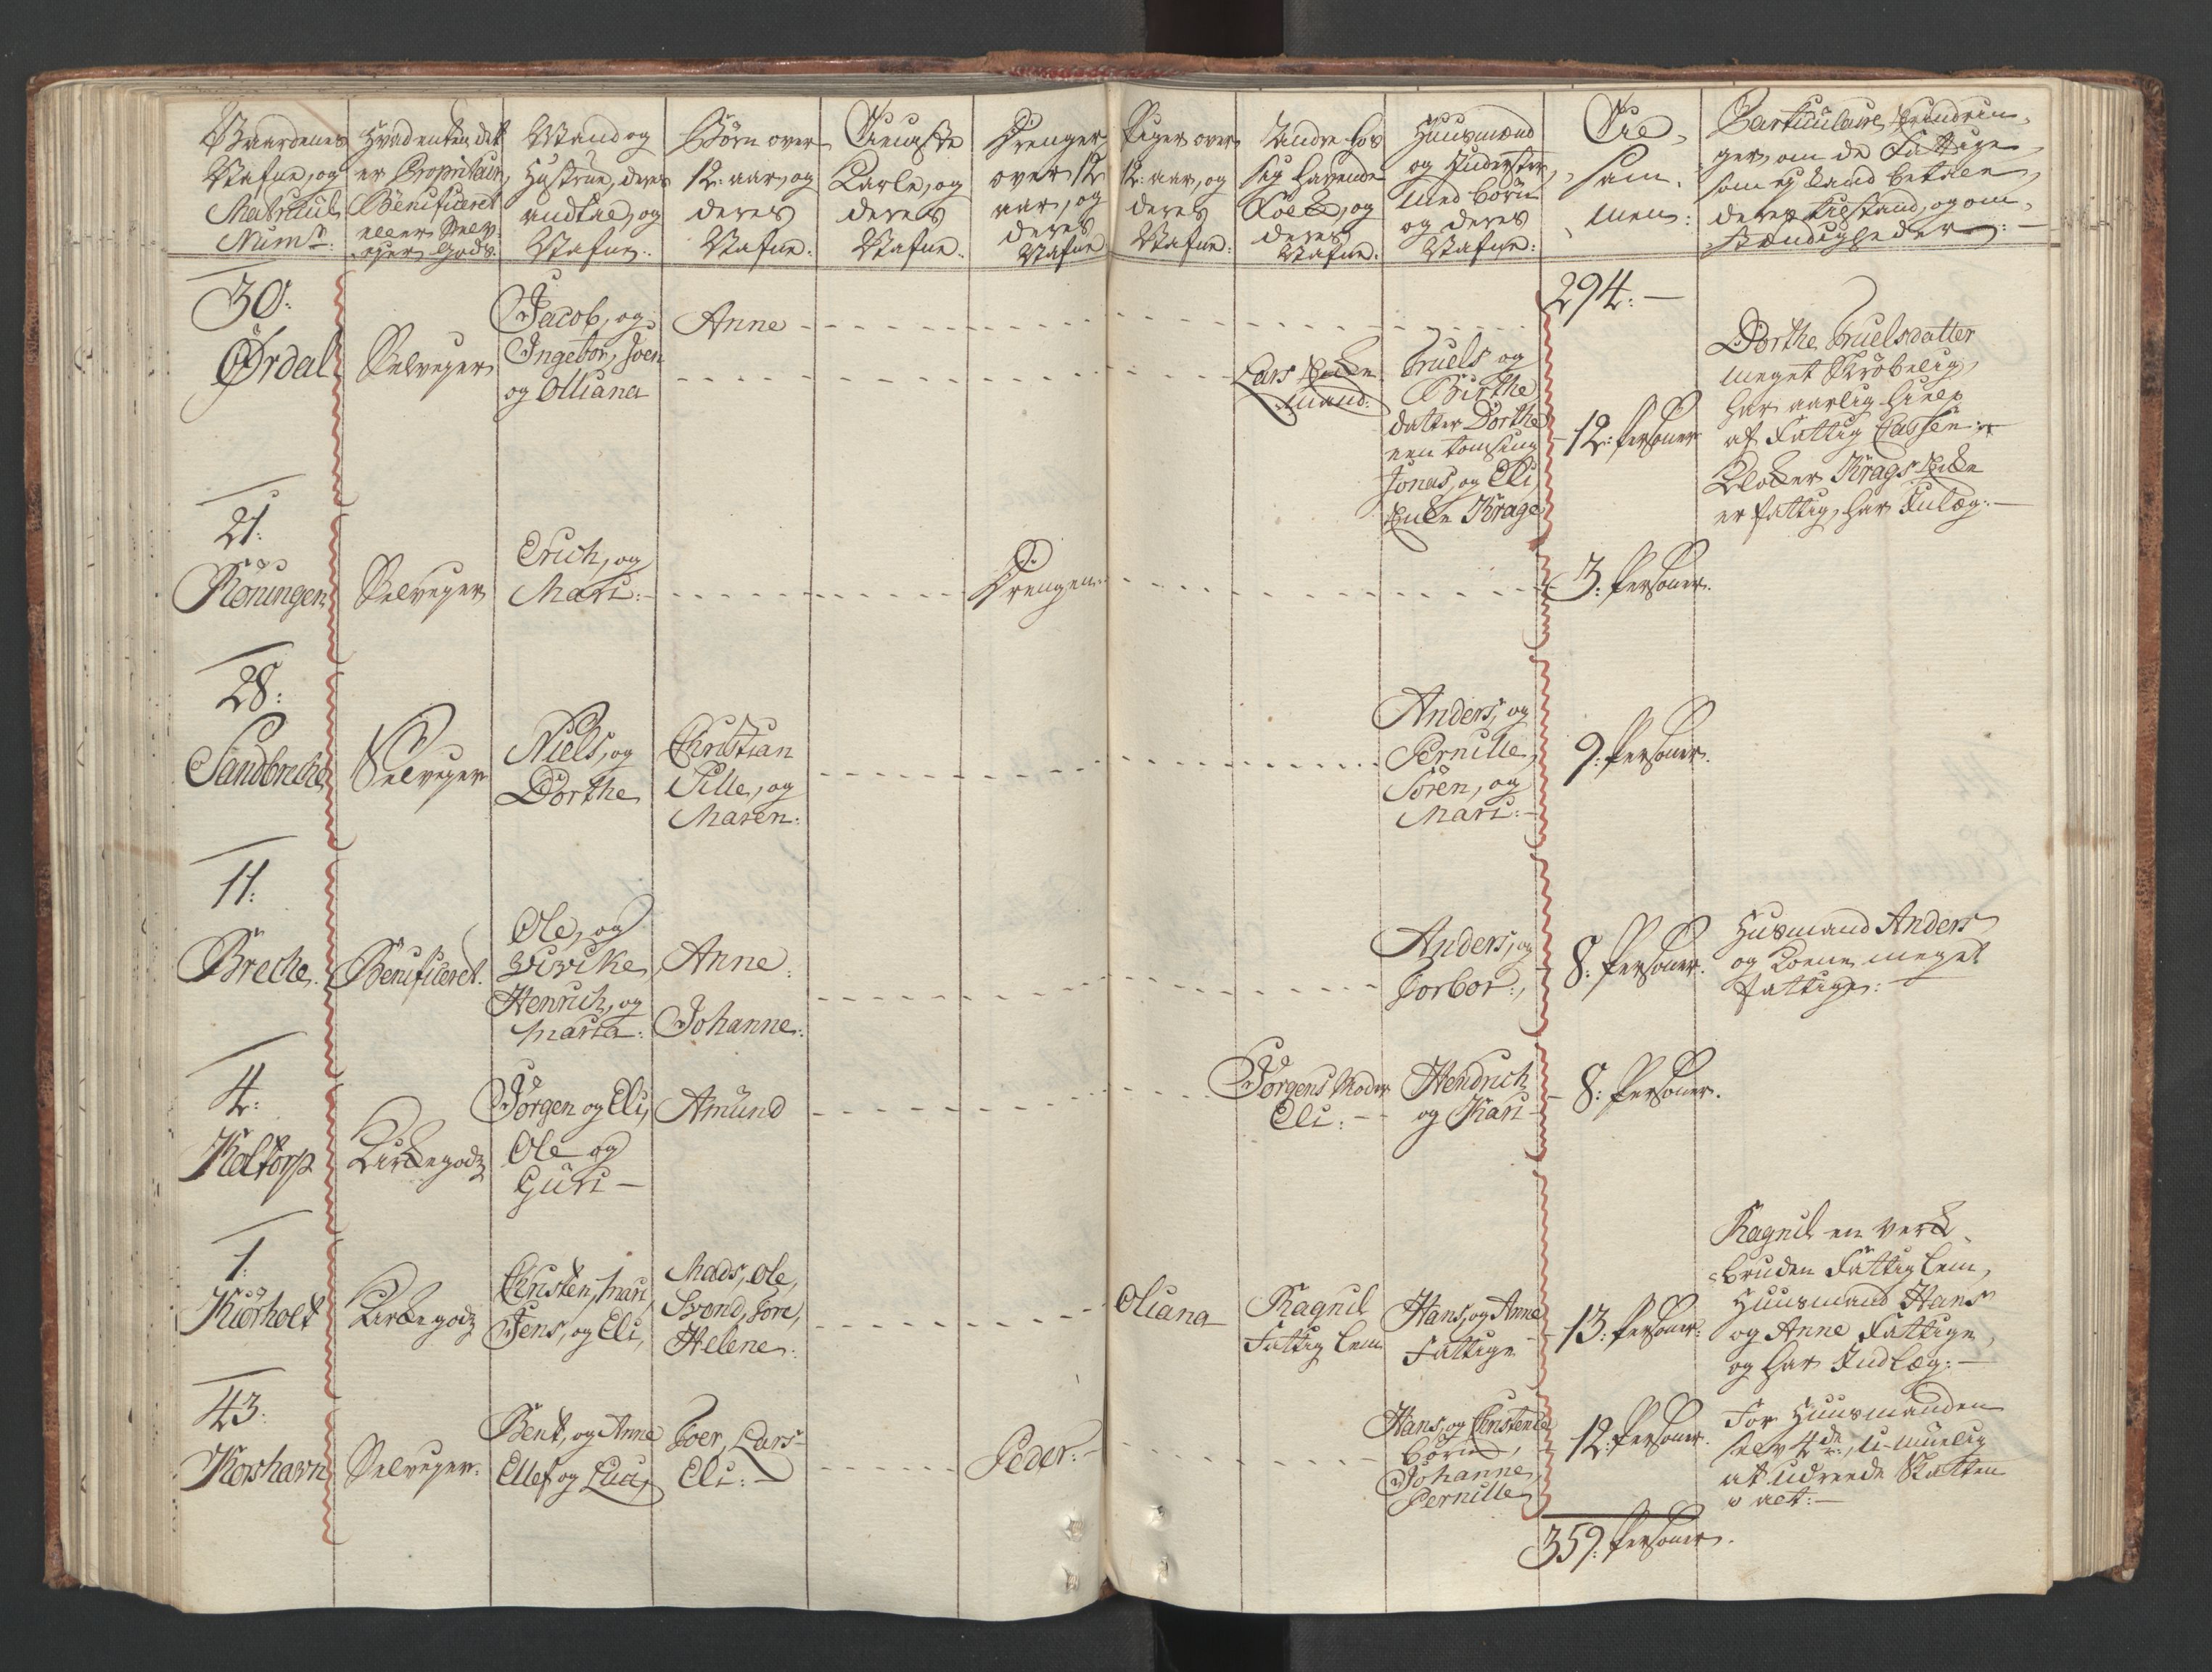 Gaardenes
Nafne, og
Matricul
Num:
Hvad enten det
er Proprietair,
Benificeret
eller Selv-
ejer Gods.
Mand og
Hustrue, deres
andtal, og
Nafne.
Børn over
12. aar, og
deres
Nafne:
Tieniste
Karle, og
deres
Nafne.
Drenger
over 12
aar, og
deres
Nafne
Piger over
12. aar, og
deres
Nafne:
Andre hos
sig havende
Folk, og
deres
Nafne.
Huusmænd
og Inderster,
med børn
og deres
Nafne:
Til-
sam-
men:
Particulaire Erindrin-
ger, om de Fattige
som ej kand betale,
deres tilstand, og om-
stændigheder:
294:
30:
Ørdal
Selvejer
Jacob, og
Ingebor, Joen
og Olliana
Anne
Lars Enke
mand:
Truels og
Birthe
datter Dorthe
een
Jonas, og Eli,
Enke Krage
12: Personer
Dorthe Truelsdatter
meget Skrøbelig,
har aarlig hielp
af Fattig Cassen:
Klokker Krags Enke
er fattig, har Inlæg:
21:
Röningen
Selvejer
Erich, og
Mari:
Drengen:
3: Personer.
28:
Sandbreche
Selvejer
Niels, og
Dorthe
Christian
Pille, og
Maren:
Anders, og
Pernille,
Sören, og
Mari:
9: Personer.
11:
Breche.
Benificeret.
Ole, og
Vivike,
Henrich, og
Maria:
Anne:
Johanne:
Anders, og
Torbor:,
8: Personer.
Husmand Anders
og Kone meget
fattige:
4:
Keltorp
Kirkegodz
Jörgen og Eli,
Ole og
Guri
Amund
Jörgens Moder
Eli:
Hendrich
og Kari
8: Personer.
1:
Kiörholt
Kirkegodz
Christen, Mari,
Jens, og Eli,
Mads, Ole,
Svend, Tore,
Helene:
Oliana
Ragnil
Fattig Lem
Hans, og Anne
Fattige
13: Personer:
Ragnil en verk-
bruden Fattig Lem,
Huusmand Hans
og Anne Fattige,
og har Indlæg:
43:
Korshavn
Selvejer:
Bent, og Anne
Ellef og Luci,
Iver, Lars
Eli:
Peder:
Hans, og Christence
Börn,
Johanne,
Pernille
12: Personer.
For Huusmanden
selv 4de, u-muelig
at udreede Skatten
359: Personer.